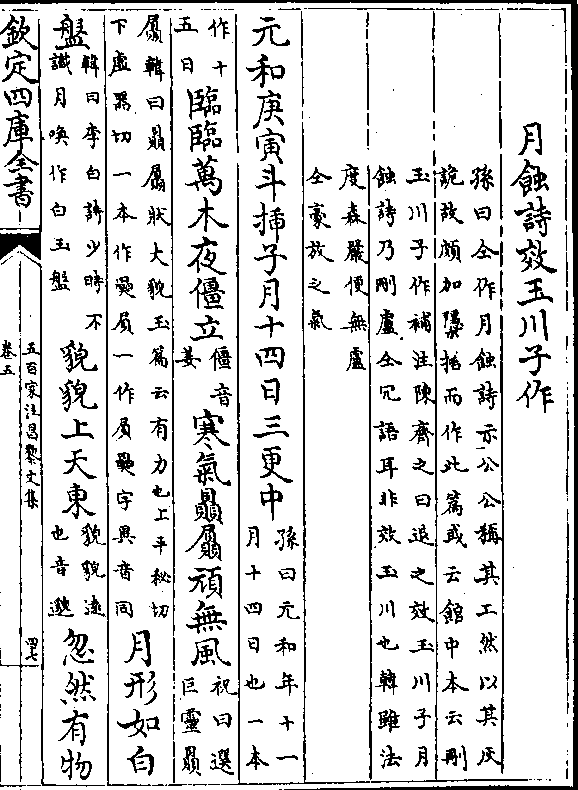 月蝕詩效玉川子作
孫曰仝作月蝕詩示公公稱其工然以其
說故頗加檃括而作此篇或云館中本云刪
玉川子作補注陳齊之曰退之效玉川子月
蝕詩乃刪盧仝冗語耳非效玉川也韓雖法
度森嚴便無盧
仝豪放之氣
元和庚寅斗揷子月十四日三更中
孫曰元和年十一
月十四日也一本
作十
五日
臨臨萬木夜僵立
僵音
姜
寒氣贔屭頑無風
祝曰選
巨靈贔
屭韓曰贔屭狀大貌玉篇云有力也上平秘切
下虛器切一本作奰屓一作屓奰字異音同
月形如白
盤
韓曰李白詩少時不
識月喚作白玉盤
貌貌上天東
貌貌遠
也音邈
忽然有物
欽定四庫全書
五百家注昌黎文集
卷五
四七